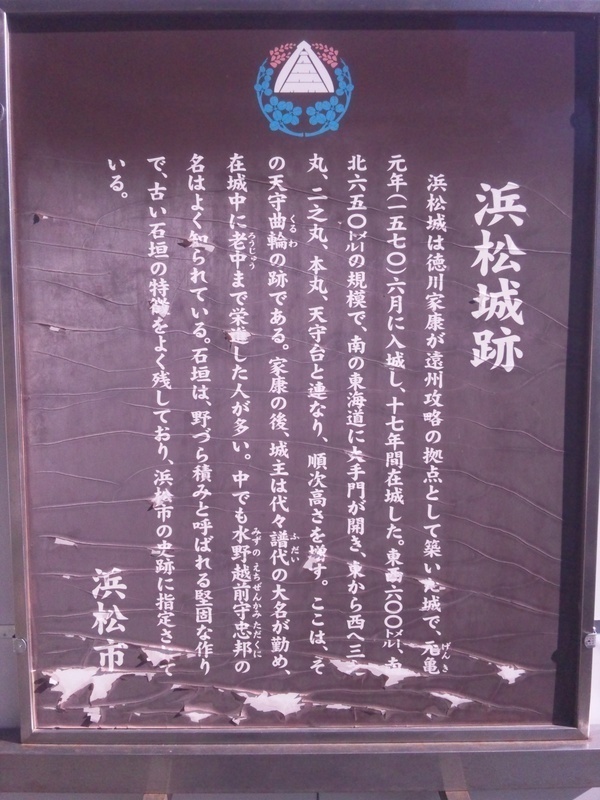 浜松城跡
浜松城は徳川家康が遠州攻略の拠点として築いた城で、元亀
元年(一五七〇)六月に入城し、十七年間在城した。東西六〇〇㍍、南
北六五〇㍍の規模で、南の東海道に大手門が開き、東から西へ三之
丸、二之丸、本丸、天守台と連なり、順次高さを増す。ここは、そ
の天守曲輪の跡である。家康の後、城主は代々譜代の大名が勤め、
在城中に老中まで栄進した人が多い。中でも水野越前守忠邦の
名はよく知られている。石垣は、野づら積みと呼ばれる堅固な作り
で、古い石垣の特徴をよく残しており、浜松市の史跡に指定されて
いる。
浜松市